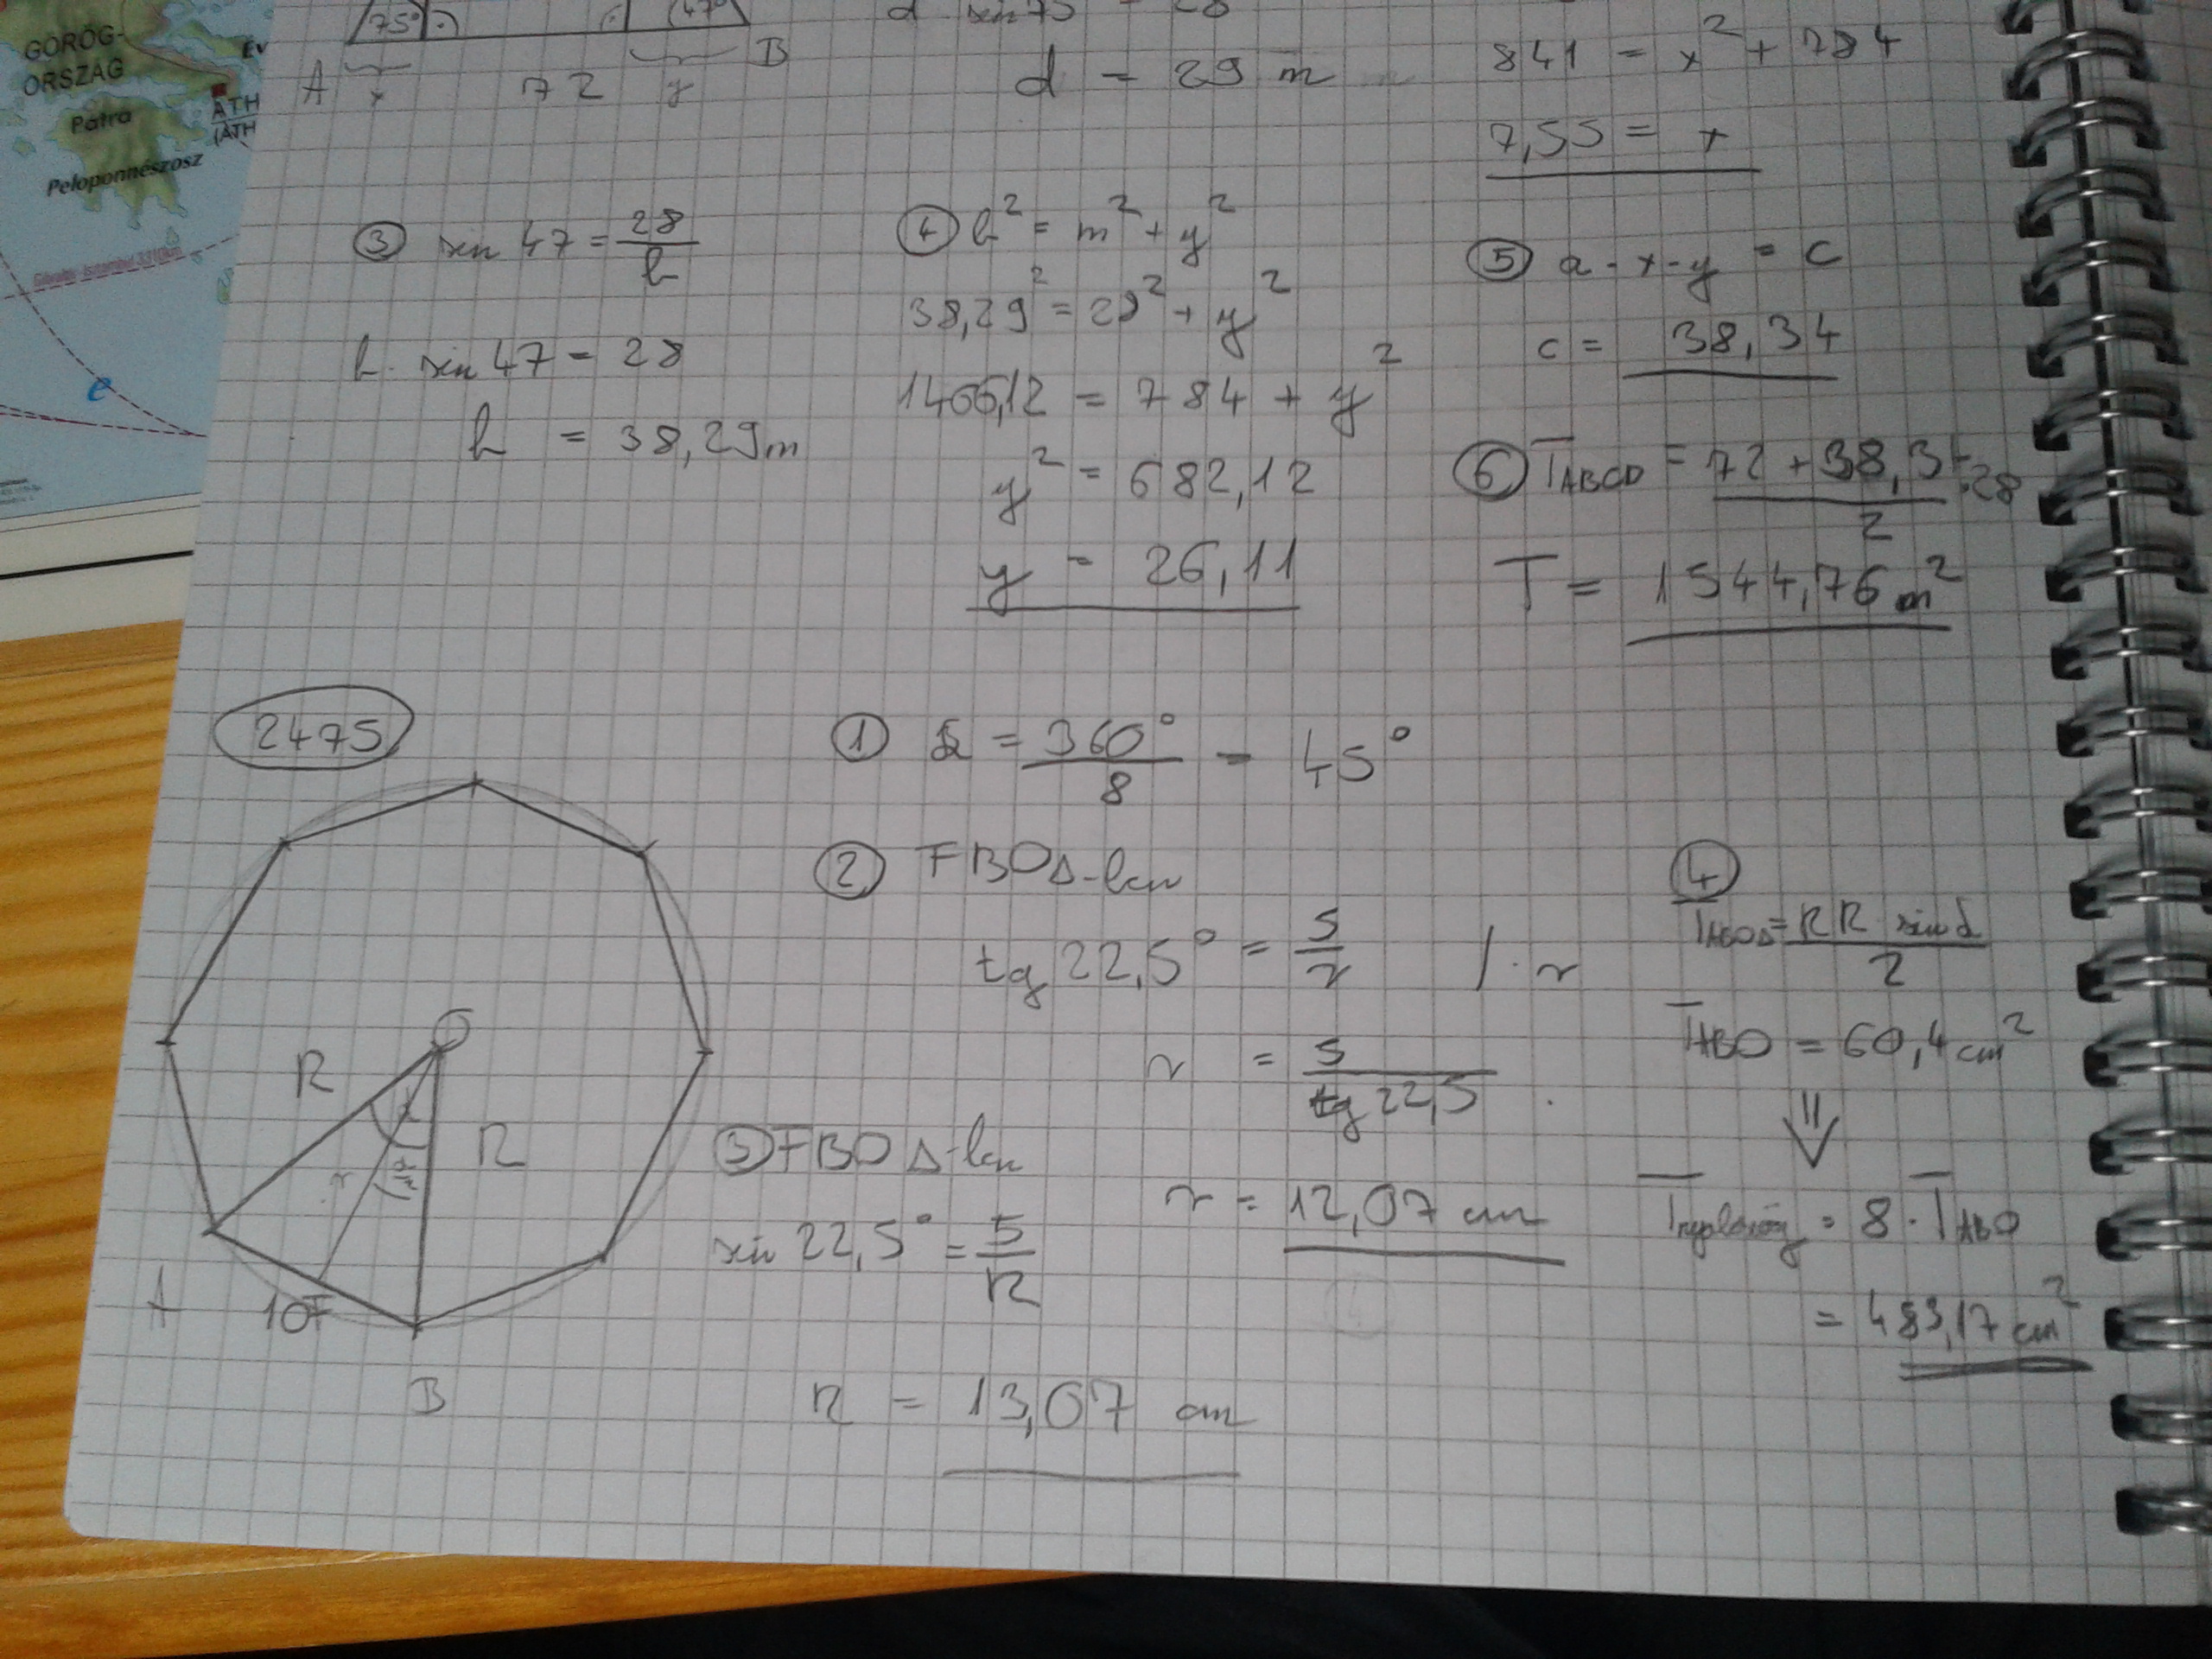 GÖRÖG-
ORSZÁG
Pátra
Peloponnészosz
ÁTH
(ATH
e
75°
47°
A x 72 y B
d sin 75 = 28
d = 29 m
841 = x² + 784
7,55 = x
③ sin 47 = 28/b
b · sin 47 = 28
b = 38,29 m
④ b² = m² + y²
38,29² = 28² + y²
1466,12 = 784 + y²
y² = 682,12
y = 26,11
⑤ a - x - y = c
c = 38,34
⑥ T ABCD = 72 + 38,34/2 · 28
T = 1544,76 m²
2475
O
R
R
r
A
10 F
B
① α = 360°/8 = 45°
② FBO△-ben
tg 22,5° = 5/r /· r
r = 5/tg 22,5
r = 12,07 cm
③ FBO △-ben
sin 22,5° = 5/R
R = 13,07 cm
④
T ABO△ = R R sin α/2
T ABO = 60,4 cm²
⇓
T nyolcszög = 8 · T ABO
= 483,17 cm²